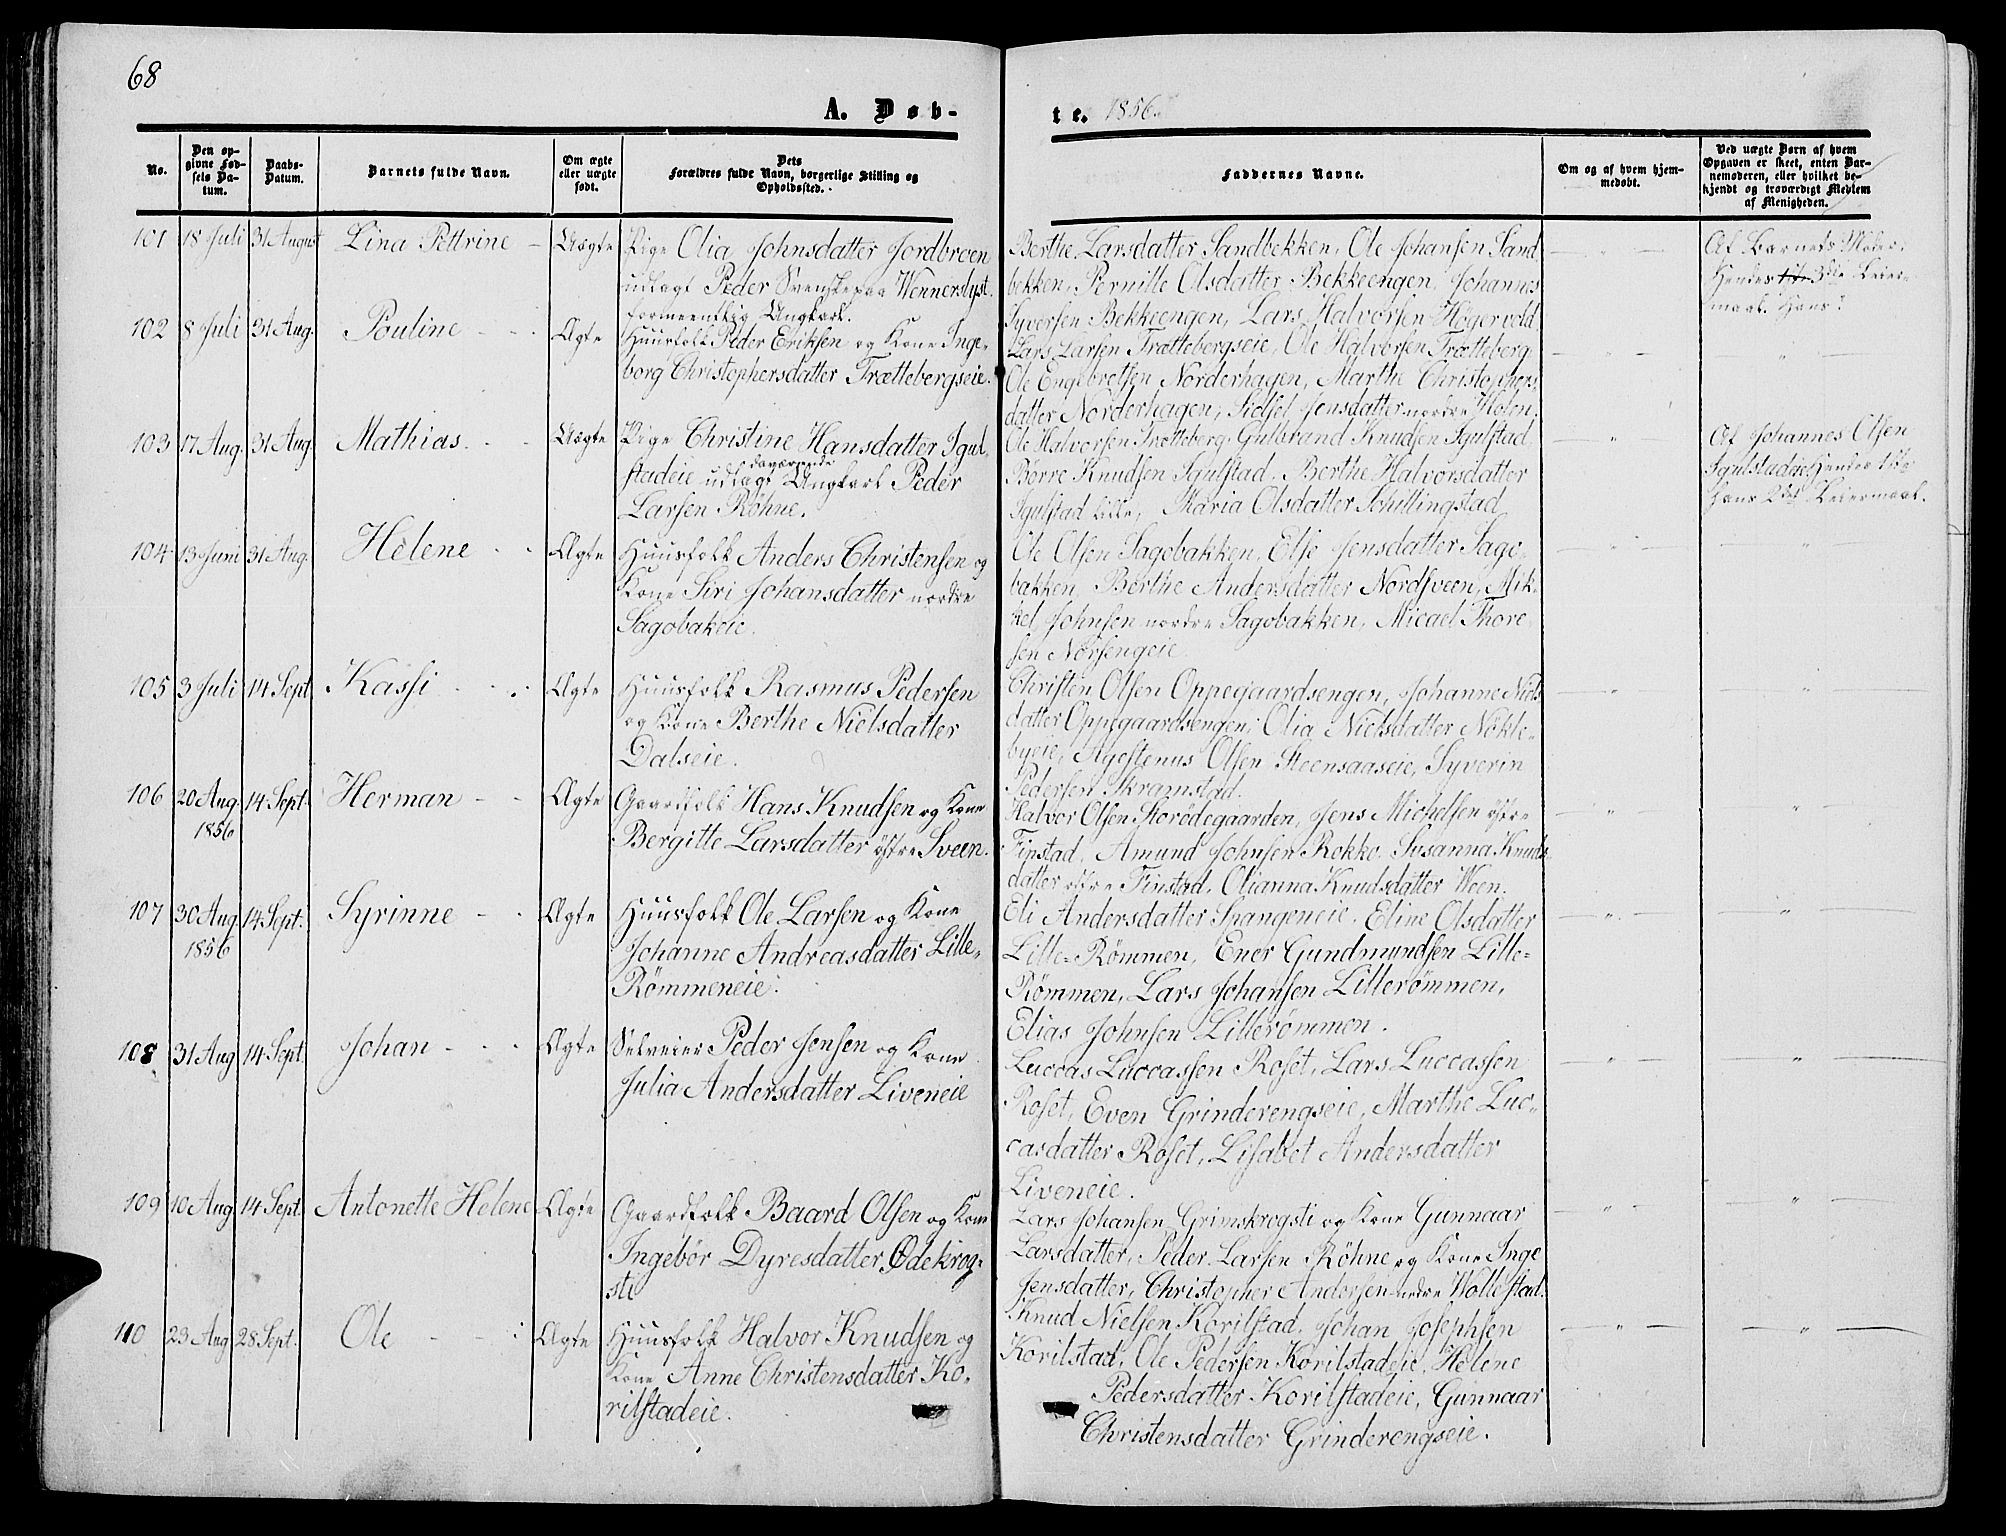 68
A. Døb-
No.
Den op-
givne Fød-
sels Da-
tum.
Daabs-
Datum.
Barnets fulde Navn.
Om ægte
eller uægte
født.
Dets
Forældres fulde Navn, borgerlige Stilling og
Opholdssted.
101 18 Juli 31 August Lina Pettrine Uægte Pige Olia Johnsdatter Jordbroen
udlagt Peder Svenske paa Wennerslyst.
formeentlig Ungkarl.
102 8 Juli 31 Aug. Pouline Ægte Huusfolk Peder Eriksen og Kone Inge-
borg Christophersdatter Trættebergseie.
103 17 Aug. 31 Aug. Mathias. Uægte Pige Christine Hansdatter Igul-
stadeie udlagt daværende Ungkarl Peder
Larsen Röhne.
104 13 Juni 31 Aug. Helene Ægte Huusfolk Anders Christensen og
Kone Siri Johansdatter nordre
Sagobakeie.
105 3 Juli 14 Sept. Kassi Ægte Huusfolk Rasmus Pedersen
og Kone Berthe Nielsdatter
Dalseie.
106 20 Aug. 14 Sept. Herman Ægte Gaardfolk Hans Knudsen og Kone
1856
Bergitte Larsdatter östre Sveen.
107 30 Aug. 14 Sept. Syrinne Ægte Huusfolk Ole Larsen og Kone
1856
Johanne Andreasdatter Lille-
Römmeneie.
108 31 Aug 14 Sept. Johan Ægte Selveier Peder Jensen og Kone
Julia Andersdatter Liveneie
109 10 Aug 14 Sept. Antonette Helene Ægte Gaardfolk Baard Olsen og Kone
Ingebör Dyresdatter Ødekrog-
sti
110 23 Aug 28 Sept. Ole Ægte Huusfolk Halvor Knudsen og
Kone Anne Christensdatter Ko-
rilstadeie.
te. 1856.
Faddernes Navne.
Om og af hvem hjem-
medøbt.
Ved uægte Børn af hvem
Opgaven er skeet, enten Bar-
nemoderen, eller hvilket be-
kjendt og troværdigt Medlem
af Menigheden.
Berthe Larsdatter Sandbekken, Ole Johansen Sand-
bekken, Pernille Olsdatter Bekkeengen, Johannes
Syversen Bekkeengen, Lars Halvorsen Högervold
Af Barnets Moder.
Hendes 3die Leier-
maal. Hans?
Lars Larsen Trættebergseie, Ole Halvorsen Trætteberg
Ole Engebretsen Norderhagen, Marthe Christophers-
datter Norderhagen, Sidsel Jensdatter nordre Holen.
Ole Halvorsen Trætteberg, Gulbrand Knudsen Igulstad,
Börre Knudsen Igulstad. Berthe Halvorsdatter
Igulstad lille, Maria Olsdatter Schillingstad
Af Johannes Olsen
Igulstadeie Hendes 1ste
Hans 2det Leiermaal.
Ole Olsen Sagobakken, Else Jensdatter Sago-
bakken, Berthe Andersdatter Nordsveen, Mik-
kel Johnsen nordre Sagobakken, Micael Thore-
sen Norsengeie.
Christen Olsen Oppegaardsengen, Johanne Niels-
datter Oppegaardsengen, Olia Nielsdatter Nökle-
byeie, Agestenus Olsen Steensaaseie, Syverin
Pedersen Skramstad.
Halvor Olsen Storödegaarden, Jens Michelsen östre
Finstad, Amund Johnsen Rokko. Susanna Knuds-
datter östre Finstad, Olianna Knudsdatter Ween.
Eli Andersdatter Spangeneie. Eline Olsdatter
Lille-Römmen, Ener Gundmundsen Lille-
Römmen, Lars Johansen Lillerömmen,
Elias Johnsen Lillerömmen.
Luccas Luccassen Roset, Lars Luccassen
Roset, Even Grinderengseie, Marthe Luc-
casdatter Roset, Lisabet Andersdatter
Liveneie.
Lars Johansen Grimskrogsti og Kone Gunnaar
Larsdatter, Peder Larsen Röhne og Kone Inge
Jensdatter, Christopher Andersen nedre Wollestad.
Knud Nielsen Korilstad. Johan Josephsen
Korilstad, Ole Pedersen Korilstadeie, Helene
Pedersdatter Korilstadeie, Gunnaar
Christensdatter Grinderengseie.